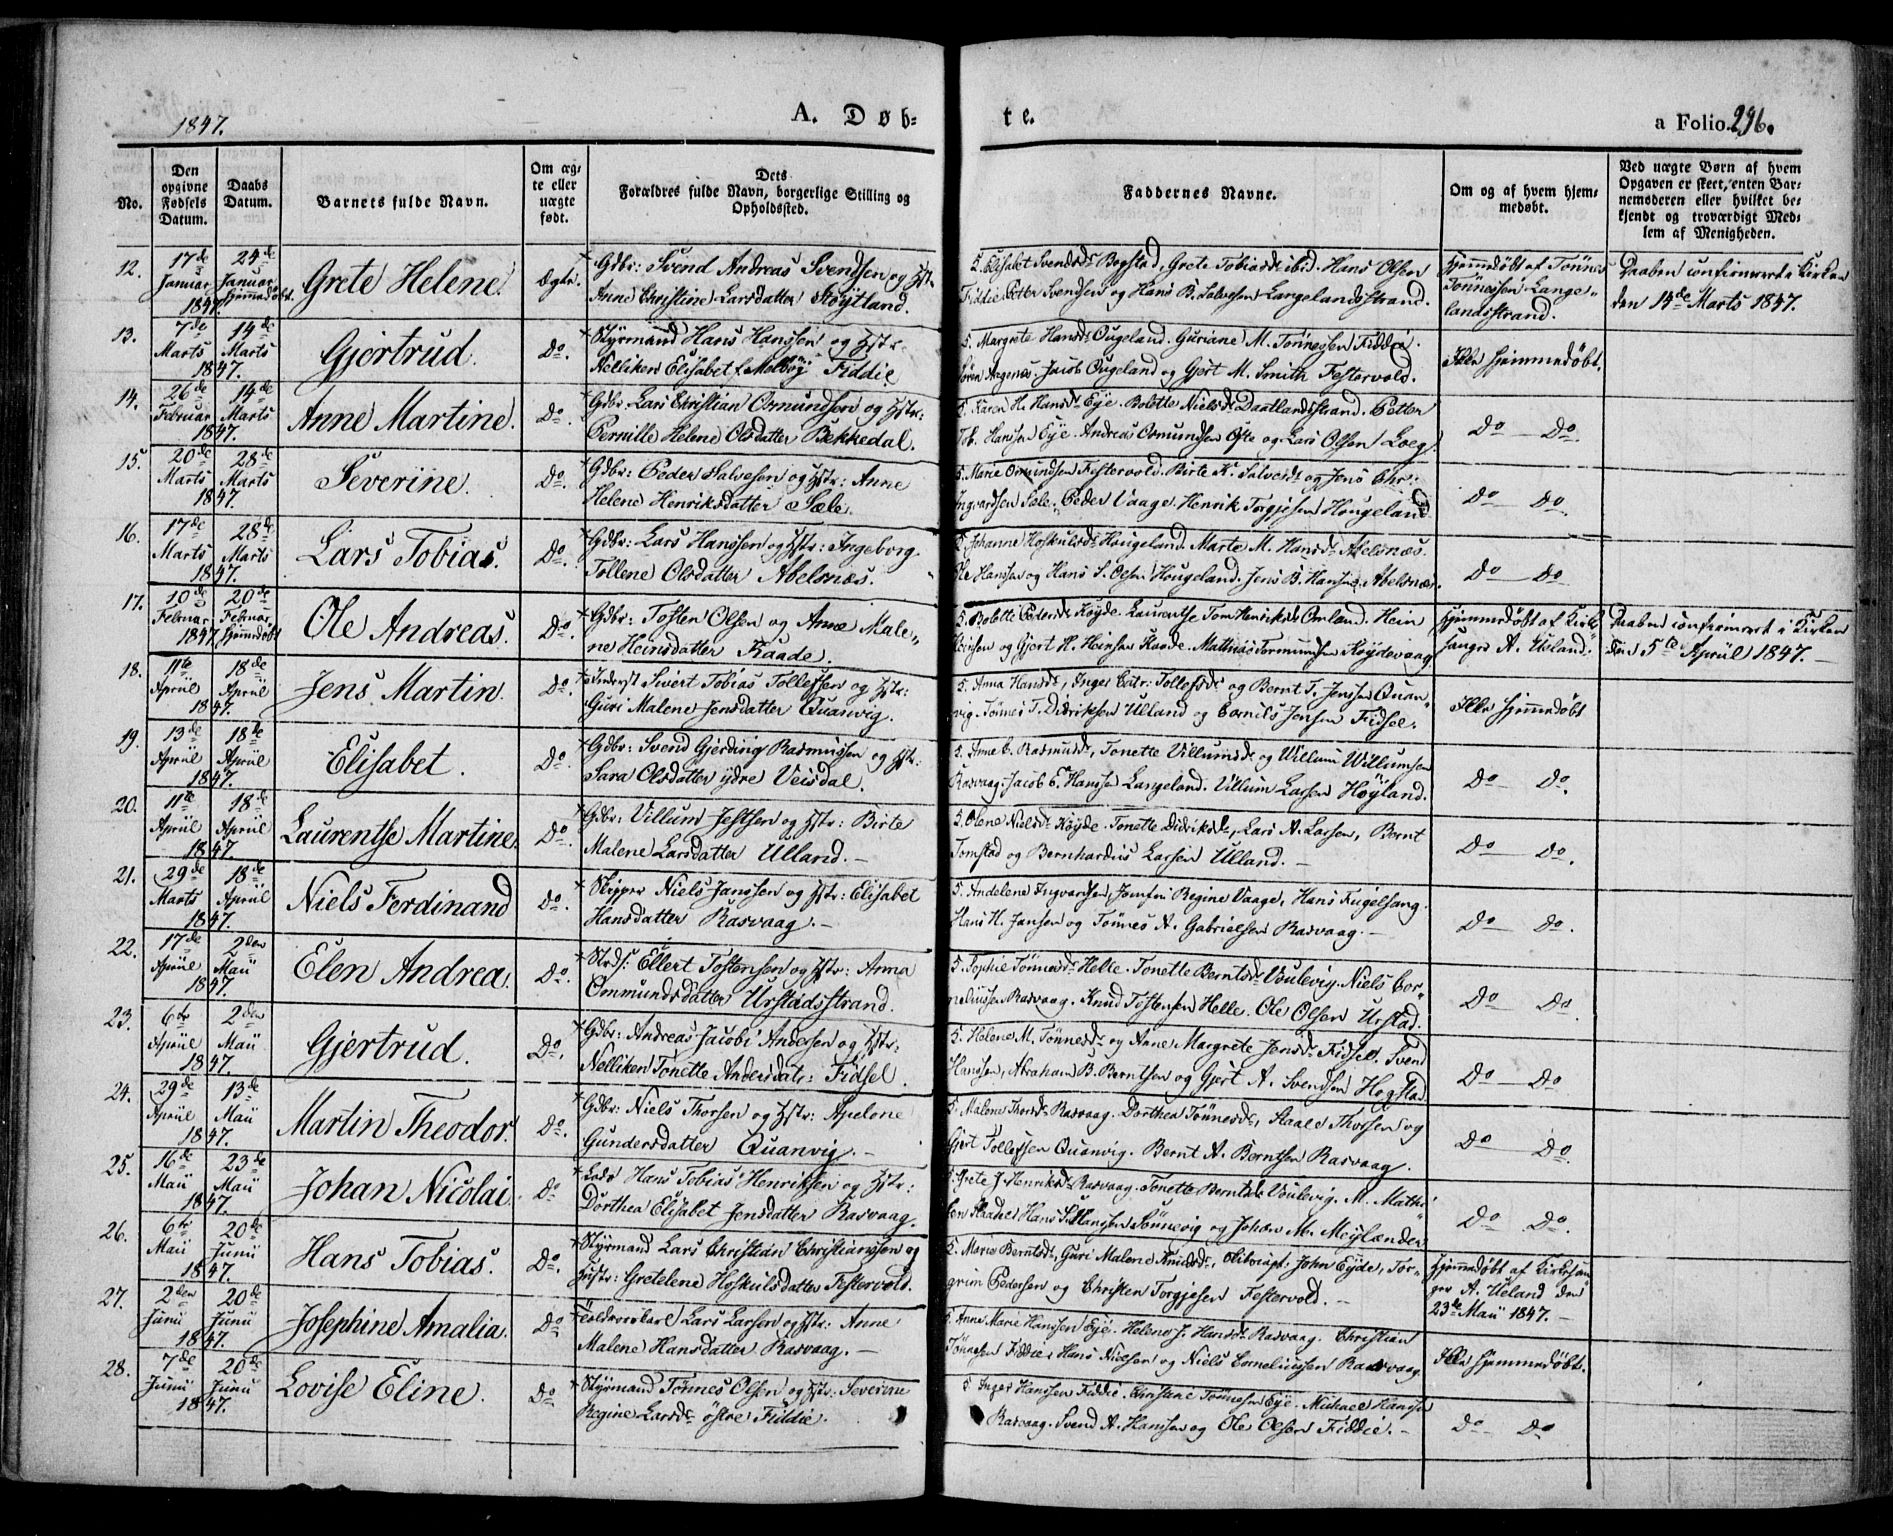 1847.
A. Døb-
te.
a Folio 296.
No.
Den opgivne Fødsels Datum.
Daabs Datum.
Barnets fulde Navn.
Om ægte eller uægte født.
Dets
Forældres fulde Navn, borgerlige Stilling og
Opholdssted.
Faddernes Navne.
Om og af hvem hjem-
medøbt.
Ved uægte Børn af hvem
Opgaven er skeet, enten Bar-
nemoderen eller hvilket be-
kjendt og troværdigt Med-
lem af Menigheden.
12. 17de Januar 1847. 24de Januar hjemmedøbt. Grete Helene. Ægte.
Gdbr: Svend Andreas Svendsen og Hst:
Anne Christine Larsdatter Høytland.
5. Elisabet Svendsd: Bogstad, Grete Tobiasd: ibid. Hans Olsen
Fiddie Petter Svendsen og Hans B. Salvesen Langelandsstrand.
Hjemmedøbt af Tønnes
Tønnessen Lange-
landsstrand.
Daaben confirmeret i Kirken
den 14de Marts 1847.
13. 7de Marts 1847. 14de Marts Gjertrud. Do.
Styrmand Hans Hanssen og Hstr:
Nelliken Elisabet f. Molbøy Fiddie
5. Margrete Hansd: Ougeland. Guriane M. Tønnessen Fiddie.
Søren Aagenæs. Jacob Ougeland og Gjert M. Smith Festervold.
Ikke hjemmedøbt.
14. 26de Februar 1847. 14de Marts Anne Martine. Do.
Gdbr: Lars Christian Osmundsen og Hstr:
Pernille Helene Olsdatter Bekkedal.
5. Karen H. Hansd: Eye. Bolette Nielsd: Daatlandstrand. Petter
Tob. Hanssen Eye. Andreas Osmundsen Ofte og Lars Olsen Loeg.
Do Do.
15. 20de Marts 1847. 28de Marts Severine. Do.
Gdbr: Peder Salvesen og Hstr: Anne
Helene Henriksdatter Sæle.
5. Marie Osmundsen Festervold. Birte K. Salvesd: og Jens Chr:
Ingvardsen Sæle. Peder Vaage. Henrik Torgjesen Hougeland
Do Do.
16. 17de Marts 1847. 28de Marts Lars Tobias. Do.
Gdbr: Lars Hanssen og Hstr: Ingeborg
Tollene Olsdatter Abelsnæs.
5. Johanne Hoskulsd: Hougeland. Marte M. Hansd: Abelsnæs.
Ole Hanssen og Hans S. Olsen Hougeland. Jens B. Hanssen Abelsnæs.
Do Do
17. 10de Februar 1847. 20de Februar hjemmedøbt Ole Andreas. Do.
Gdbr: Tosten Olsen og Anne Male-
ne Heinsdatter Raade.
5. Bolette Pedersd: Køyde. Laurentse Tom Henriksd: Omland. Hein
Heinsen og Gjert H. Heinsen Raade. Mathias Tormundsen Køydevaag
Hjemmedøbt af Kirke-
sanger A. Ueland.
Daaben confirmeret i Kirken
den 5te April 1847.
18. 11te April 1847. 18de April Jens Martin. Do.
Inderst Sivert Tobias Tollefsen og Hstr:
Guri Malene Jensdatter Quanvig.
5. Anna Hansd:, Inger Catr: Tollefsd: og Bernt T. Jenssen Quan-
vig. Tønnes T. Didriksen Ulland og Cornils Jensen Fidsel.
Ikke hjemmedøbt
19. 13de April 1847. 18de April Elisabet. Do.
Gdbr: Svend Gjerding Rasmussen og Hstr:
Sara Olsdatter ydre Veisdal.
5. Anne C. Rasmusd:, Tonette Villumsd: og Willum Willumsen
Rasvaag. Jacob E. Hanssen Langeland. Villum Larsen Høyland.
Do Do.
20. 11te April 1847. 18de April Laurentse Martine. Do.
Gdbr: Villum Jestsen og Hstr: Birte
Malene Larsdatter Ulland.
5. Olene Nielsd: Køyde. Tonette Didriksd:, Lars A. Larsen, Bernt
Tomstad og Bernhardus Larsen Ulland.
Do Do.
21. 29de Marts 1847. 18de April Niels Ferdinand Do.
Skipper Niels Janssen og Hstr: Elisabet
Hansdatter Rasvaag.
5. Andelene Ingvardsen, Jomfru Regine Vaage, Hans Fugelsang.
Hans H. Jansen og Tønnes A. Gabrielsen Rasvaag.
Do Do.
22. 17de April 1847. 2den Maii Elen Andrea. Do.
Strds: Ellert Tostensen og Hstr: Anna
Ommundsdatter Urstadsstrand.
5. Sophie Tønnesd: Helle. Tonette Berntsd: Voulevig. Niels Cor-
neliussen Rasvaag. Knud Tostensen Helle. Ole Olsen Urstad.
Do Do.
23. 6te April 1847. 2den Maii Gjertrud. Do.
Gdbr: Andreas Jacobi Andersen og Hstr:
Nelliken Tonette Andersdatr: Fidsel.
5. Helene M. Tønnesd: og Anne Margrete Jensd: Fidsel. Svend
Hanssen, Abraham B. Berntsen og Gjert A. Svendsen Hogstad
Do Do
24. 29de April 1847. 13de Maii Martin Theodor. Do.
Gdbr: Niels Thorsen og Hstr: Apelone
Gundersdatter Quanvig.
5. Malene Thorsd: Rasvaag. Dorthea Tønnesd:, Staale Thorsen og
Gjert Tollefsen Quanvig. Bernt A. Berntsen Rasvaag.
Do Do.
25. 16de Maii 1847. 23de Maii Johan Nicolai. Do
Lods Hans Tobias Henriksen og Hstr:
Dorthea Elisabet Jensdatter Rasvaag.
5. Grete J. Henriksd: Rasvaag. Tonette Berntsd: Voulevig. M. Mathi-
sen Raade. Hans S. Hanssen Sønnevig og Johan M. Meylænder
Do Do.
26. 6te Maii 1847. 20de Junii Hans Tobias. Do.
Styrmand Lars Christian Christianssen og
Hustr: Gretelene Hoskulsdatter Festervold.
5. Marie Berntsd:, Guri Malene Knudsd:, John Eyde, Tor-
grim Pedersen og Christen Torgjesen Festervold.
Hjemmedøbt af Kirkesan-
ger A. Ueland den
23de Maii 1847.
27. 2den Junii 1847. 20de Junii Josephine Amalia. Do
Lars Larsen og Hstr: Anne
Malene Hansdatter Rasvaag.
5. Anne Marie Hanssen Eye. Helene J. Hansd: Rasvaag. Christian
Tønnesen Fiddie, Hans Nielsen og Niels Corneliussen Rasvaag
Ikke hjemmedøbt.
28. 7de Junii 1847. 20de Junii Lovise Eline. Do
Styrmand Tønnes Olsen og Hstr: Severine
Regine Larsd: østre Fiddie.
5. Inger Hanssen Fiddie. Christane Tønnesen Eye. Michael Hanssen
Rasvaag. Svend A. Hanssen og Ole Olsen Fiddie.
Do Do